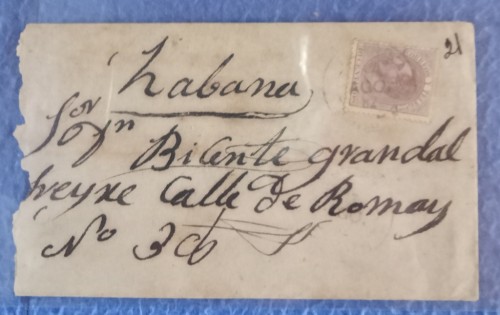 21
habana
AGO
Sor
Dn
Bicente grandal
freyre Calle de Romay
No 36